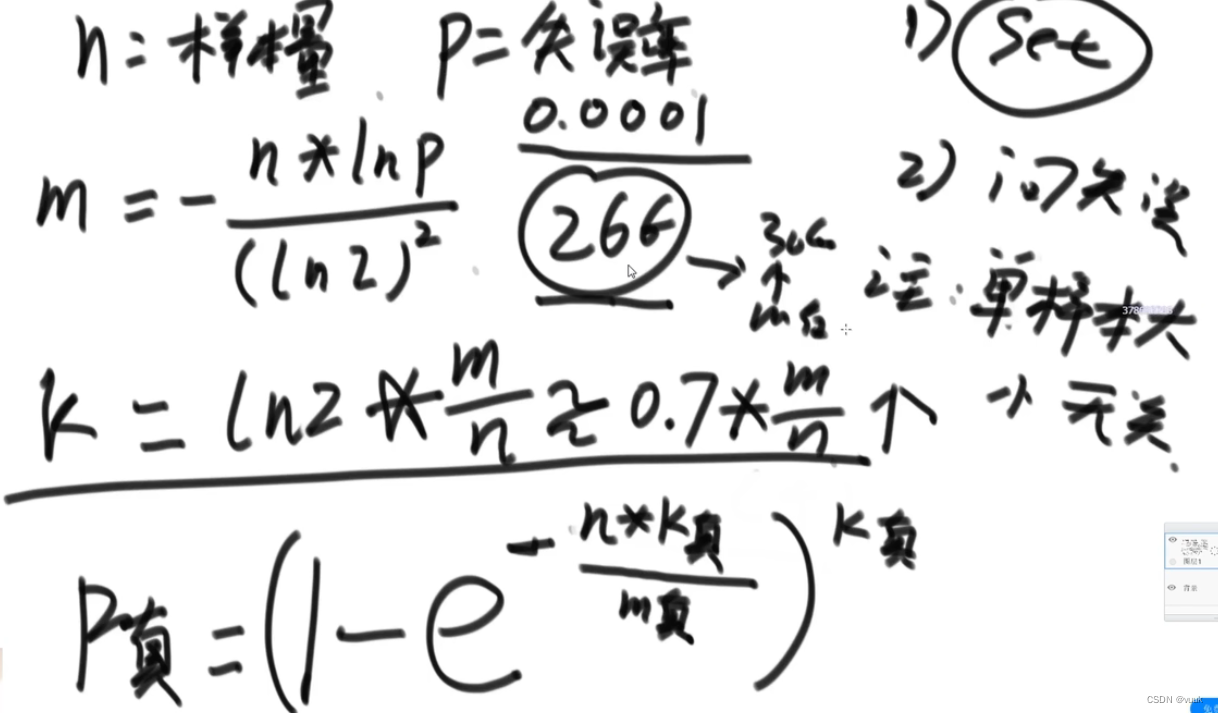 n = 样本量 p = 失误率 1) Set
0.0001
m = - n * ln p / (ln 2)² 26G → 30G 2) 问失误
↑
m位
注: 单样本大小无关
k = ln2 * m/n ≈ 0.7 * m/n ↑
P真 = (1 - e^(- n * k真 / m真))^k真
图层1
背景
CSDN